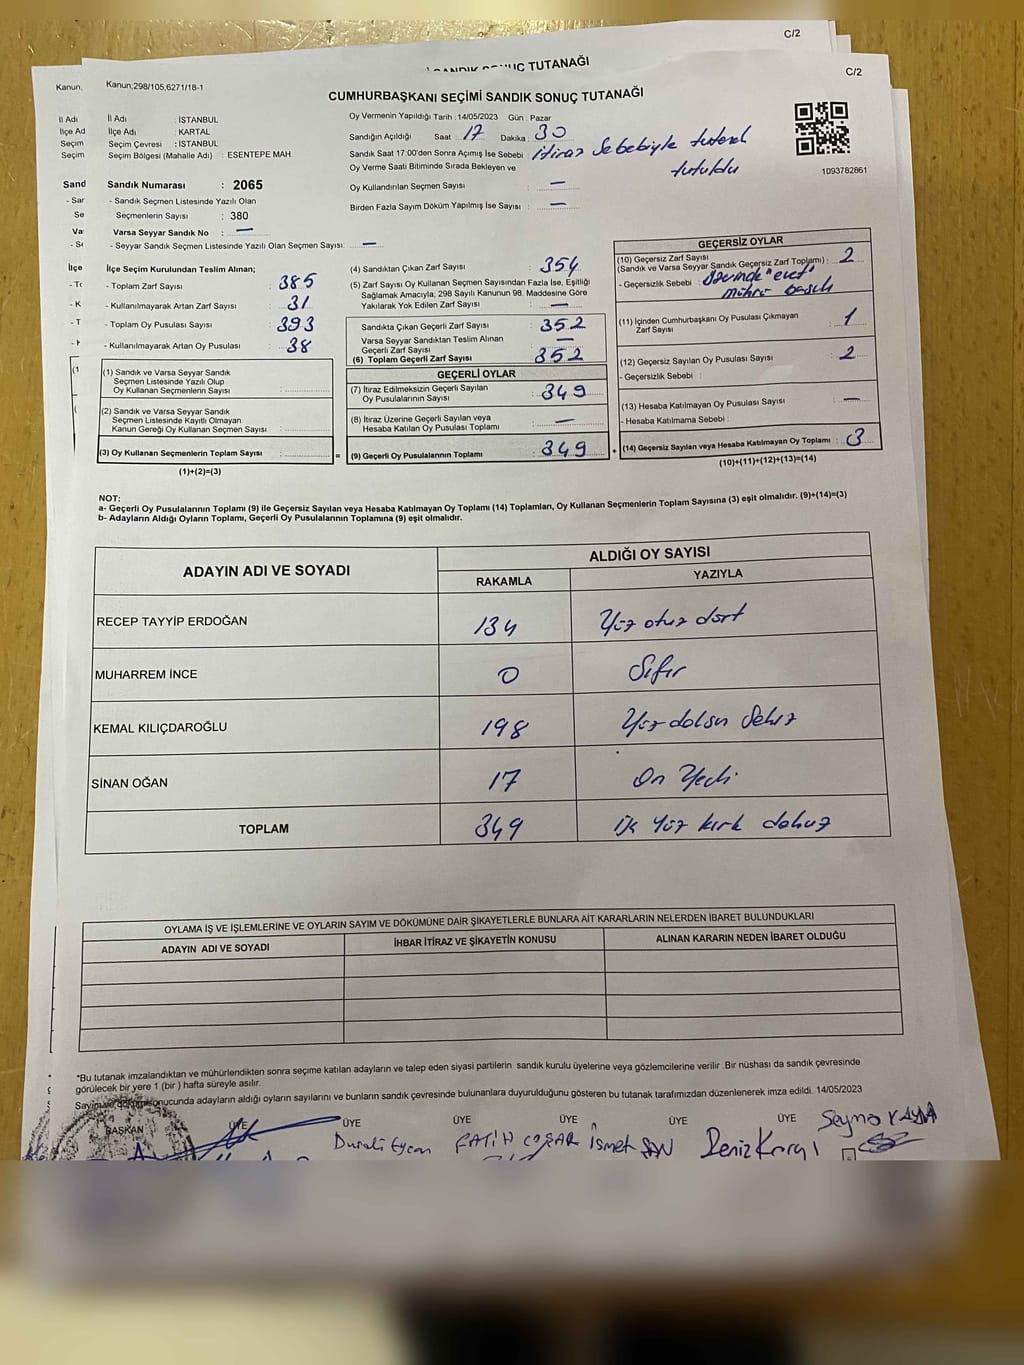 C/2
SANDIK SONUÇ TUTANAĞI
C/2
Kanun,
Kanun;298/105,6271/18-1
CUMHURBAŞKANI SEÇİMİ SANDIK SONUÇ TUTANAĞI
İl Adı
İl Adı : İSTANBUL
İlçe Ad
İlçe Adı : KARTAL
Seçim
Seçim Çevresi : İSTANBUL
Seçim
Seçim Bölgesi (Mahalle Adı) : ESENTEPE MAH.
Oy Vermenin Yapıldığı Tarih : 14/05/2023 Gün : Pazar
Sandığın Açıldığı Saat : 17 Dakika : 30
Sandık Saat 17:00'den Sonra Açımış İse Sebebi : itiraz Sebebiyle tutanak tutuldu
Oy Verme Saati Bitiminde Sırada Bekleyen ve
Oy Kullandırılan Seçmen Sayısı : —
Birden Fazla Sayım Döküm Yapılmış İse Sayısı : —
1093782861
Sand
Sandık Numarası : 2065
- Sar
- Sandık Seçmen Listesinde Yazılı Olan
Se
Seçmenlerin Sayısı : 380
Va
Varsa Seyyar Sandık No : —
- Se
- Seyyar Sandık Seçmen Listesinde Yazılı Olan Seçmen Sayısı: —
İlçe
İlçe Seçim Kurulundan Teslim Alınan;
- To
- Toplam Zarf Sayısı : 385
- K
- Kullanılmayarak Artan Zarf Sayısı : 31
- T
- Toplam Oy Pusulası Sayısı : 393
- Kullanılmayarak Artan Oy Pusulası : 38
(1
(1) Sandık ve Varsa Seyyar Sandık
Seçmen Listesinde Yazılı Olup
Oy Kullanan Seçmenlerin Sayısı :
(2) Sandık ve Varsa Seyyar Sandık
Seçmen Listesinde Kayıtlı Olmayan
Kanun Gereği Oy Kullanan Seçmen Sayısı :
(3) Oy Kullanan Seçmenlerin Toplam Sayısı :
(1)+(2)=(3)
(4) Sandıktan Çıkan Zarf Sayısı : 354
(5) Zarf Sayısı Oy Kullanan Seçmen Sayısından Fazla İse, Eşitliği
Sağlamak Amacıyla, 298 Sayılı Kanunun 98. Maddesine Göre
Yakılarak Yok Edilen Zarf Sayısı : —
Sandıkta Çıkan Geçerli Zarf Sayısı : 352
Varsa Seyyar Sandıktan Teslim Alınan
Geçerli Zarf Sayısı : —
(6) Toplam Geçerli Zarf Sayısı : 352
GEÇERLİ OYLAR
(7) İtiraz Edilmeksizin Geçerli Sayılan
Oy Pusulalarının Sayısı : 349
(8) İtiraz Üzerine Geçerli Sayılan veya
Hesaba Katılan Oy Pusulası Toplamı : —
= (9) Geçerli Oy Pusulalarının Toplamı : 349
GEÇERSİZ OYLAR
(10) Geçersiz Zarf Sayısı
(Sandık ve Varsa Seyyar Sandık Geçersiz Zarf Toplamı) : 2
- Geçersizlik Sebebi : Üzerinde "evet"
mührü basılı
(11) İçinden Cumhurbaşkanı Oy Pusulası Çıkmayan
Zarf Sayısı : 1
(12) Geçersiz Sayılan Oy Pusulası Sayısı : 2
- Geçersizlik Sebebi :
(13) Hesaba Katılmayan Oy Pusulası Sayısı : —
- Hesaba Katılmama Sebebi :
+ (14) Geçersiz Sayılan veya Hesaba Katılmayan Oy Toplamı : 3
(10)+(11)+(12)+(13)=(14)
NOT:
a- Geçerli Oy Pusulalarının Toplamı (9) ile Geçersiz Sayılan veya Hesaba Katılmayan Oy Toplamı (14) Toplamları, Oy Kullanan Seçmenlerin Toplam Sayısına (3) eşit olmalıdır. (9)+(14)=(3)
b- Adayların Aldığı Oyların Toplamı, Geçerli Oy Pusulalarının Toplamına (9) eşit olmalıdır.
ADAYIN ADI VE SOYADI
ALDIĞI OY SAYISI
RAKAMLA YAZIYLA
RECEP TAYYİP ERDOĞAN 134 Yüz otuz dört
MUHARREM İNCE 0 Sıfır
KEMAL KILIÇDAROĞLU 198 Yüz doksn Sekiz
SİNAN OĞAN 17 On Yedi
TOPLAM 349 Üç Yüz kırk dokuz
OYLAMA İŞ VE İŞLEMLERİNE VE OYLARIN SAYIM VE DÖKÜMÜNE DAİR ŞİKAYETLERLE BUNLARA AİT KARARLARIN NELERDEN İBARET BULUNDUKLARI
ADAYIN ADI VE SOYADI İHBAR İTİRAZ VE ŞİKAYETİN KONUSU ALINAN KARARIN NEDEN İBARET OLDUĞU
*Bu tutanak imzalandıktan ve mühürlendikten sonra seçime katılan adayların ve talep eden siyasi partilerin sandık kurulu üyelerine veya gözlemcilerine verilir .Bir nüshası da sandık çevresinde
görülecek bir yere 1 (bir ) hafta süreyle asılır.
sonucunda adayların aldığı oyların sayılarını ve bunların sandık çevresinde bulunanlara duyurulduğunu gösteren bu tutanak tarafımızdan düzenlenerek imza edildi. 14/05/2023
BAŞKAN ÜYE ÜYE ÜYE ÜYE ÜYE ÜYE
FATİH COŞAR İsmet Deniz Seyma KAYA